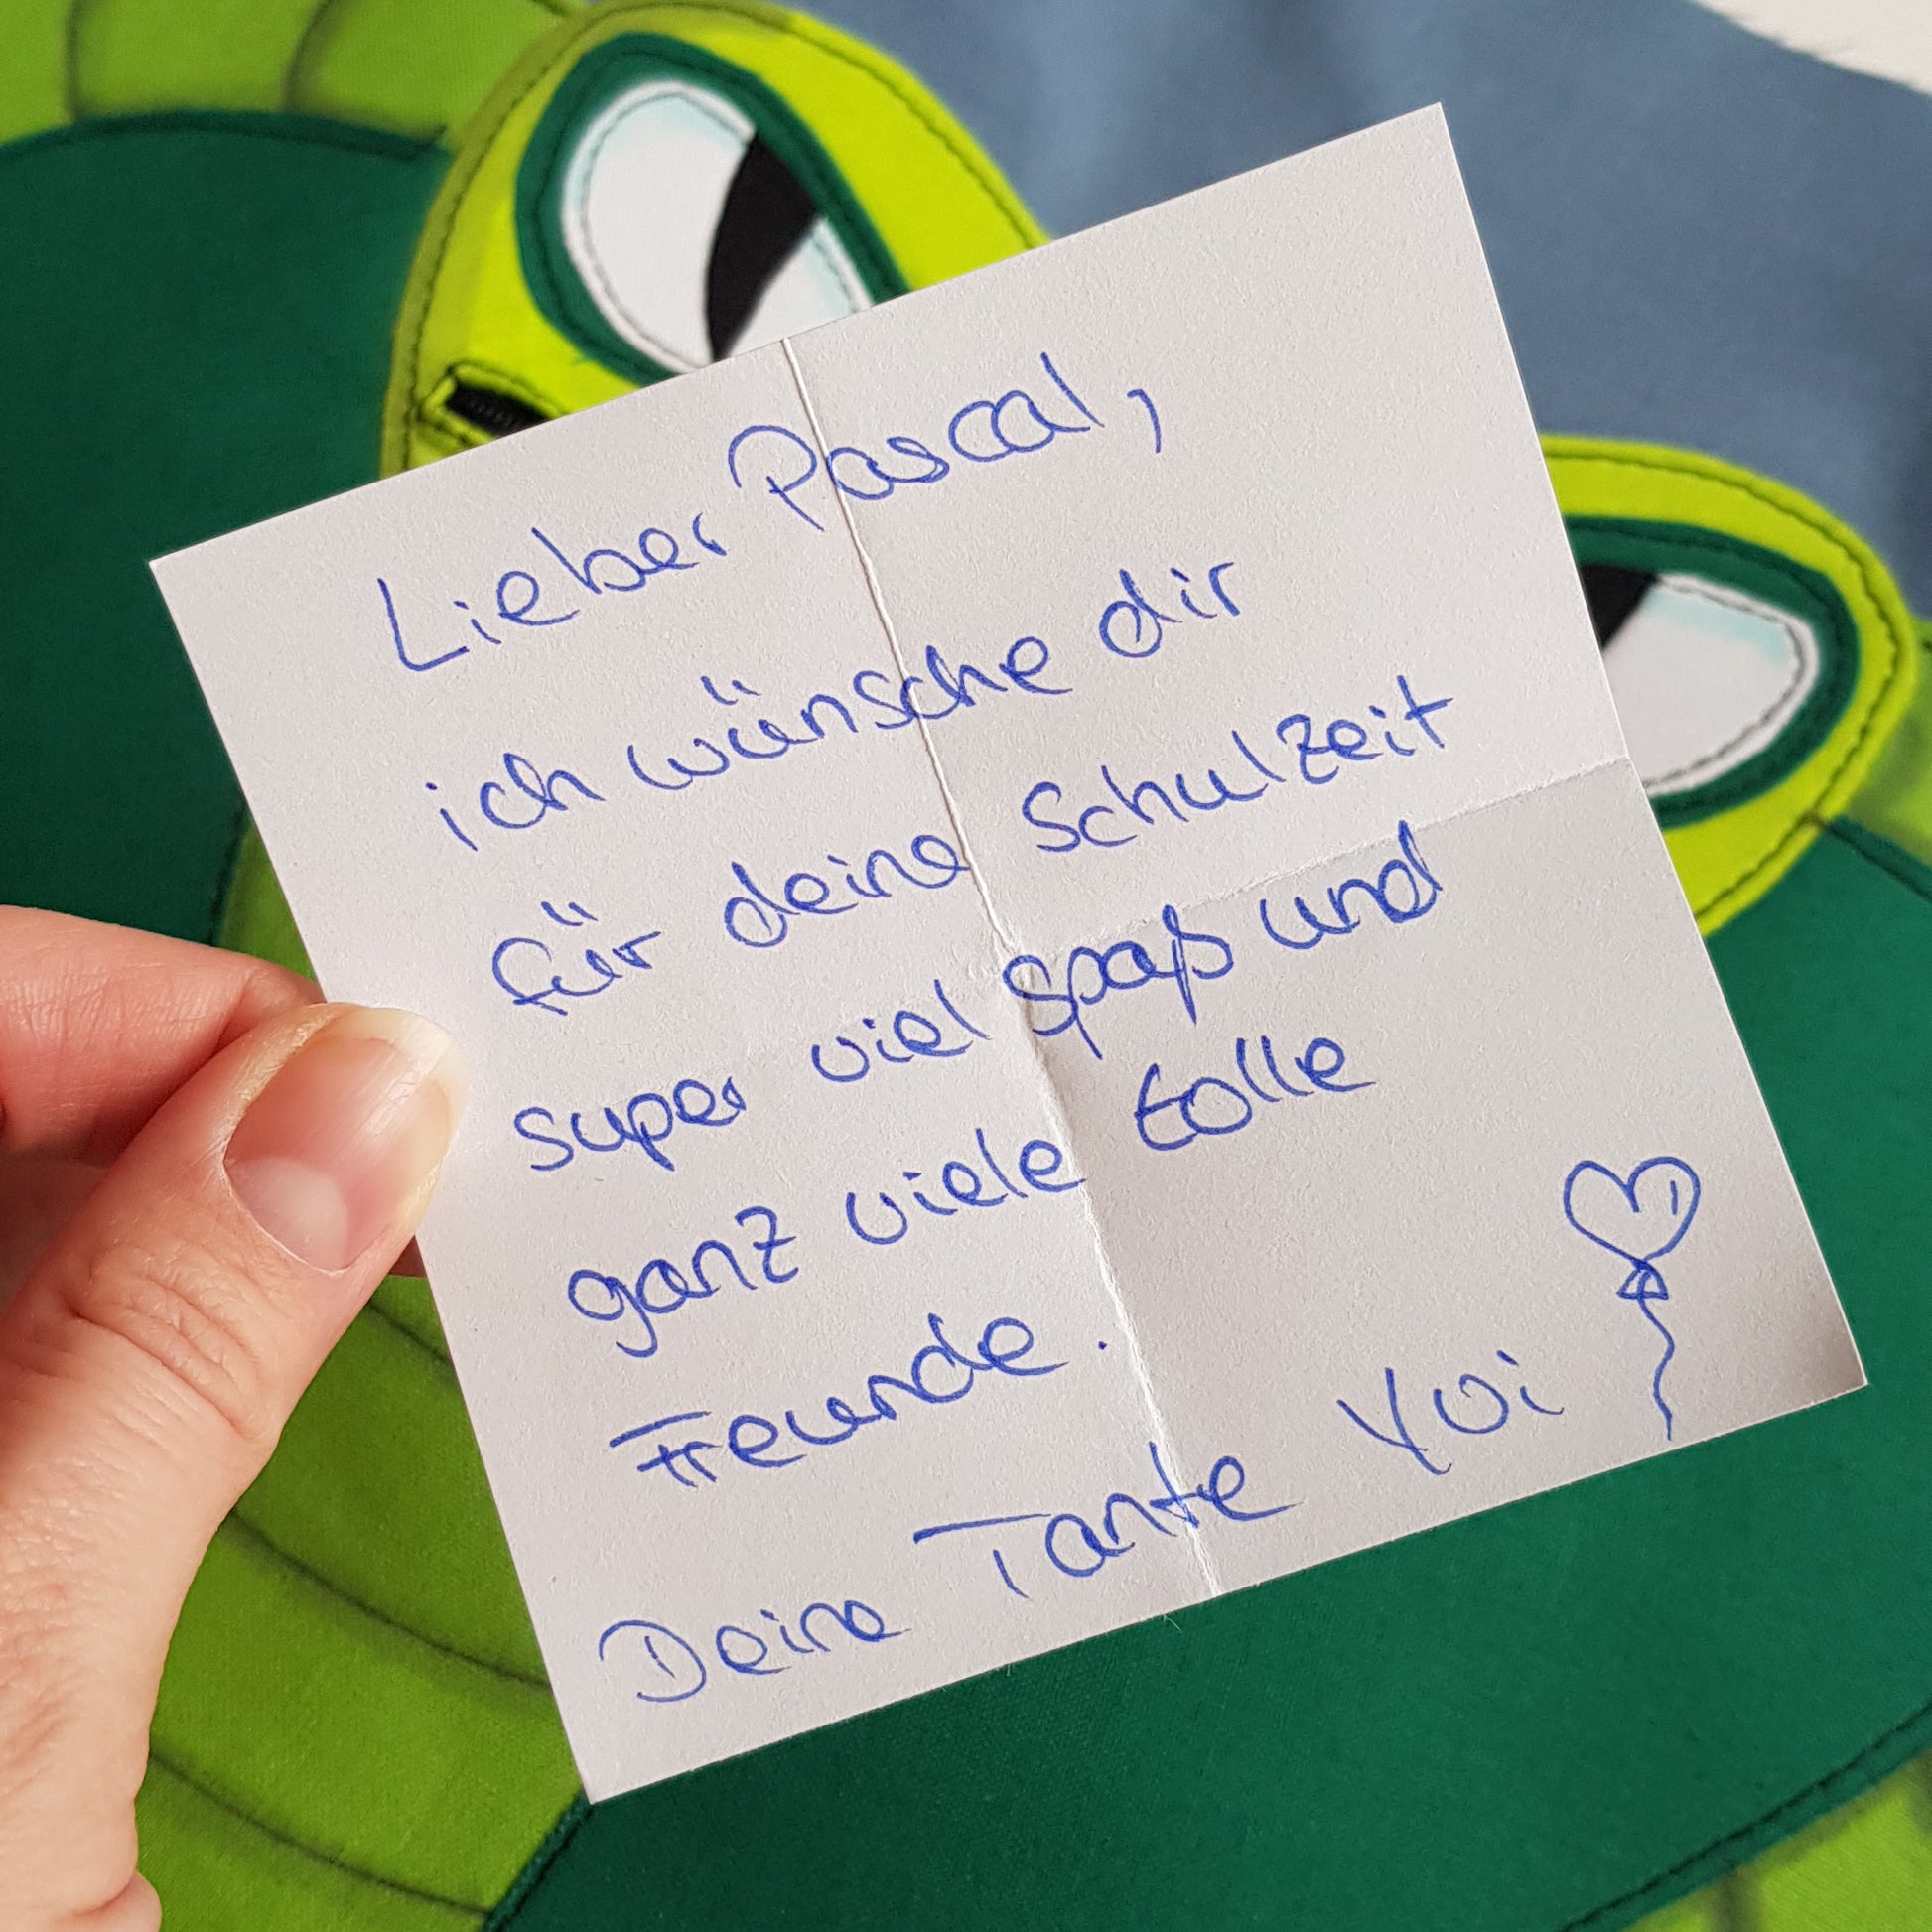 Lieber Pascal,
ich wünsche dir
für deine Schulzeit
super viel Spaß und
ganz viele tolle
Freunde.
Deine Tante Yvi